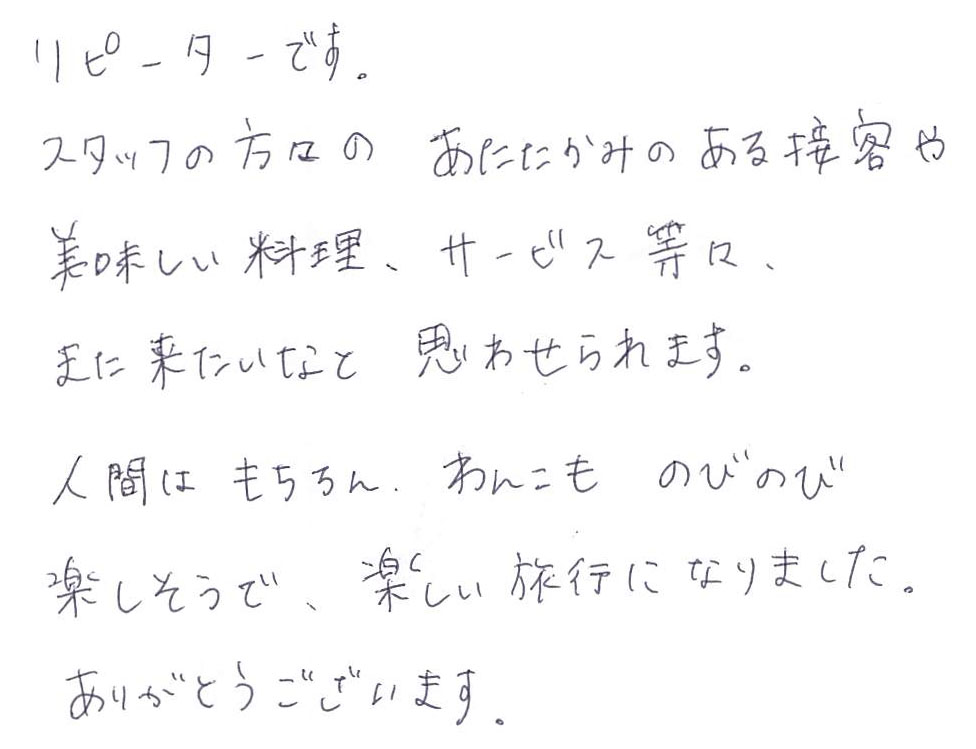 リピーターです。
スタッフの方々の あたたかみのある接客や
美味しい料理、サービス等々、
また来たいなと 思わせられます。
人間は もちろん、わんこも のびのび
楽しそうで、楽しい旅行になりました。
ありがとうございます。